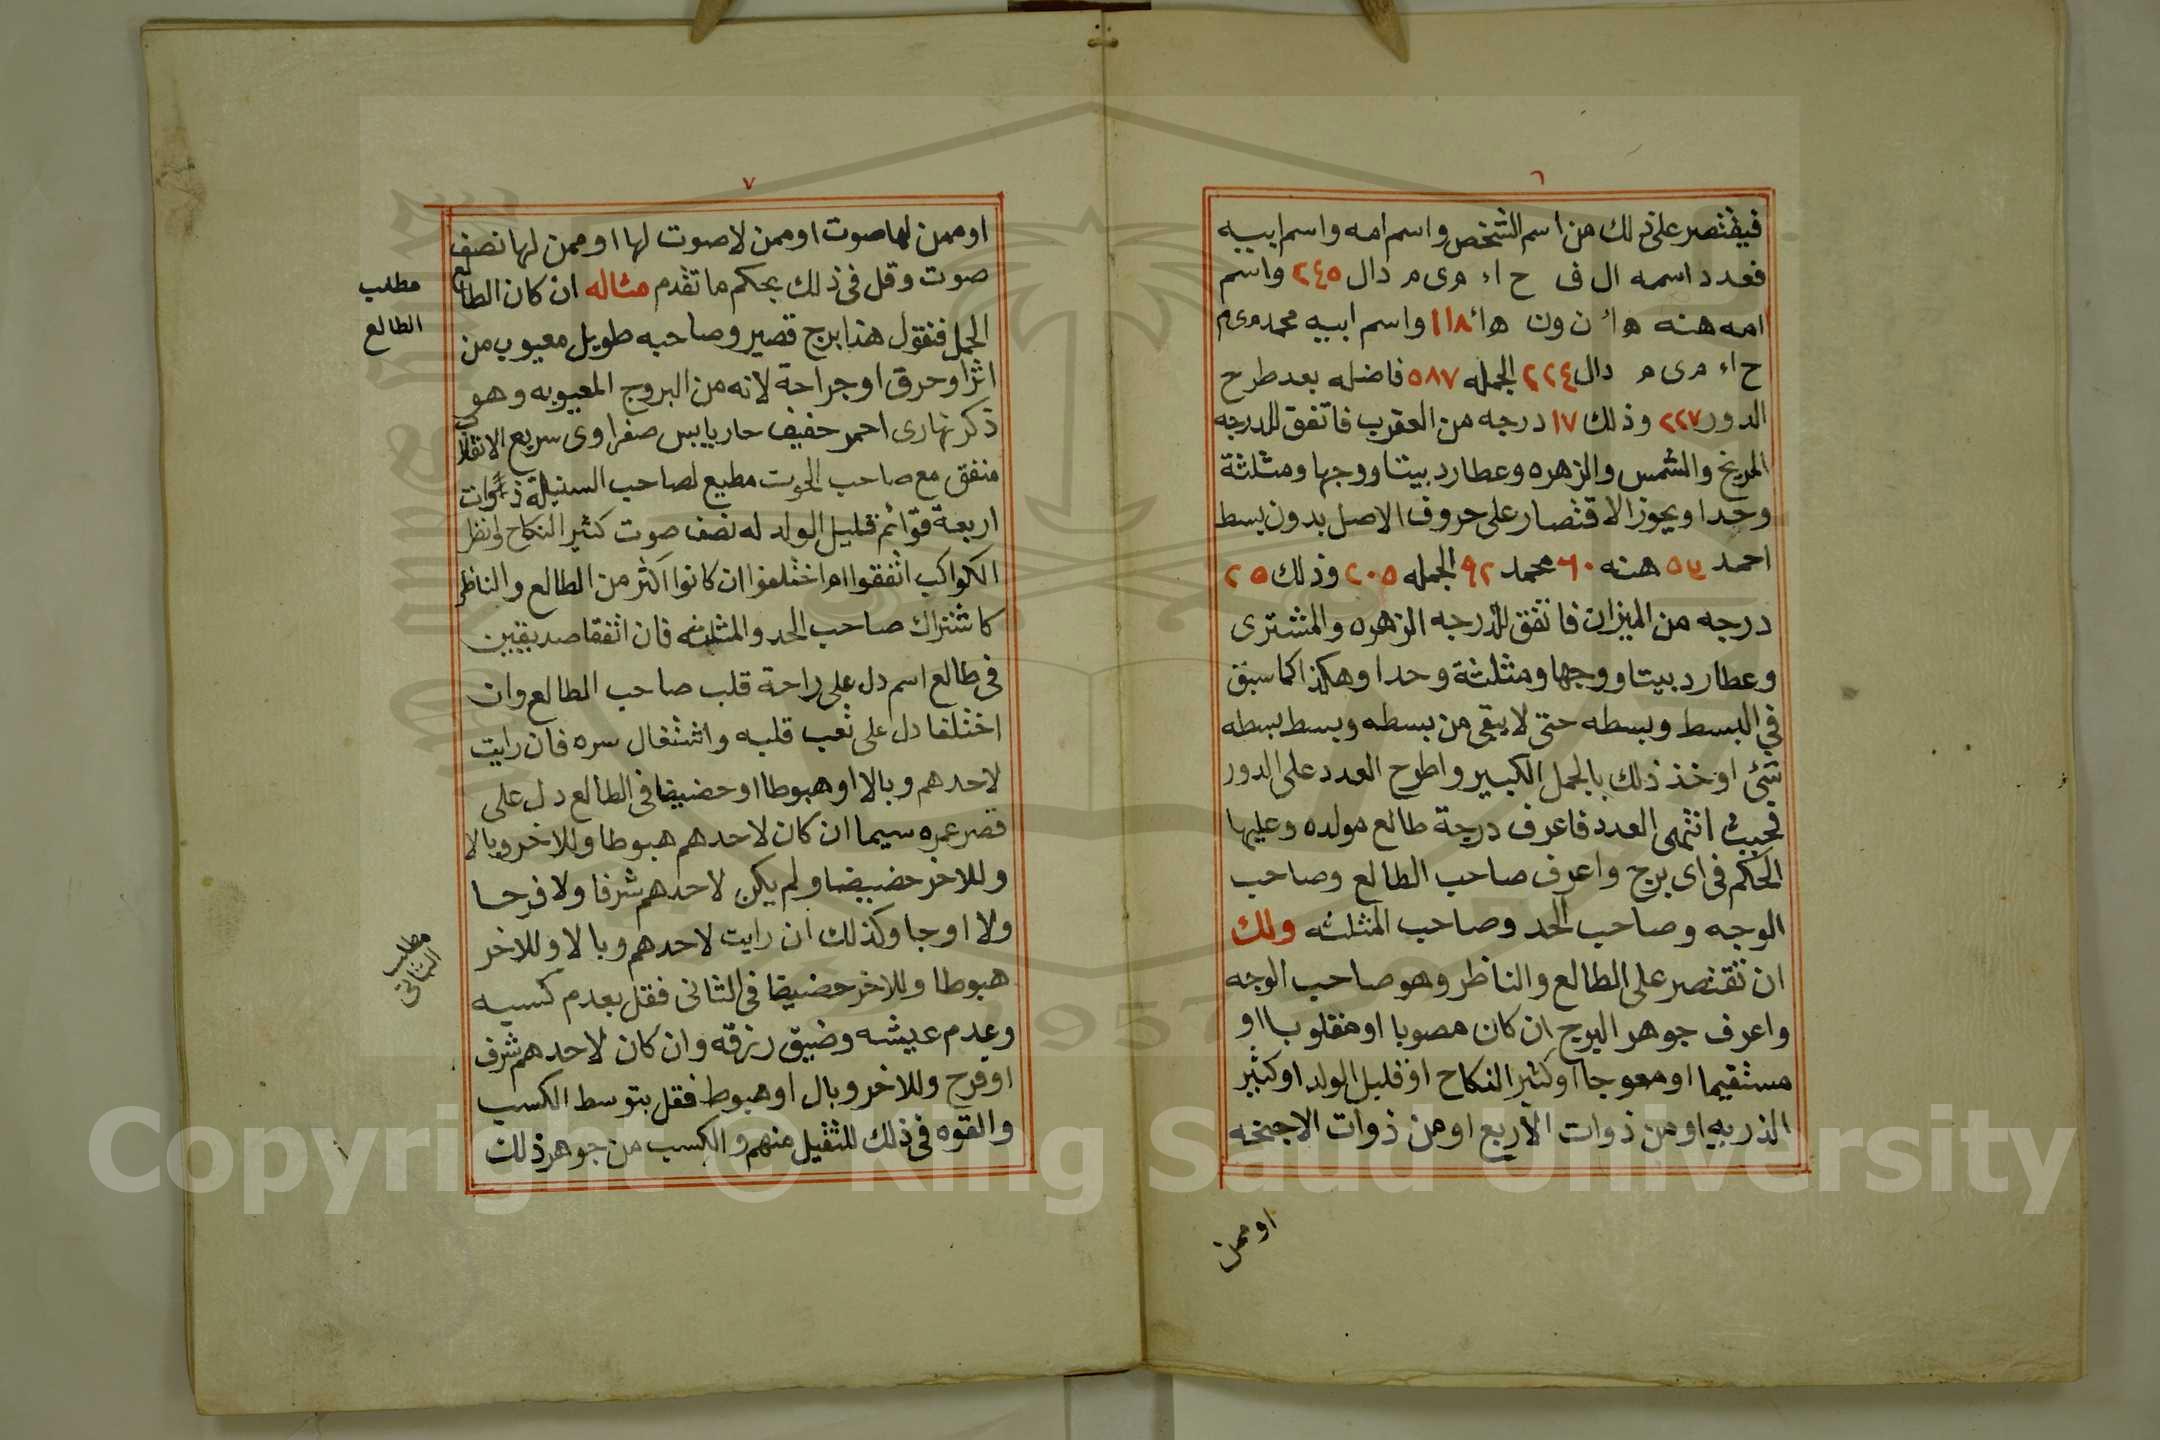 ٦
فيقتصر على ذلك من اسم الشخص واسم امه واسم ابيه
فعدد اسمه ال ف ح اء م ى م دال ٢٤٥ واسم
امه هنه ها ن ون ها ١١٨ واسم ابيه محمد م ى م
ح اء م ى م دال ٢٢٤ الجمله ٥٨٧ فاضله بعد طرح
الدور ٢٢٧ وذلك ١٧ درجه من العقرب فاتفق للدرجه
المريخ والشمس والزهره وعطارد بيتا ووجها ومثلثة
وحدا ويجوز الاقتصار على حروف الاصل بدون بسط
احمد ٥٣ هنه ٦٠ محمد ٩٢ الجمله ٢٠٥ وذلك ٢٥
درجه من الميزان فاتفق للدرجه الزهره والمشترى
وعطارد بيتا ووجها ومثلثة وحدا وهكذا كما سبق
في البسط وبسطه حتى لا يبقى من بسطه وبسط بسطه
شئ او خذ ذلك بالجمل الكبير واطرح العدد على الدور
فحيث انتهى العدد فاعرف درجة طالع مولده وعليها
الحكم فى اى برج واعرف صاحب الطالع وصاحب
الوجه وصاحب الحد وصاحب المثلثه ولك
ان تقتصر على الطالع والناظر وهو صاحب الوجه
واعرف جوهر البرج ان كان مصوبا او مقلوبا او
مستقيما او معوجا او كثير النكاح او قليل الولد او كثير
الذريه او من ذوات الاربع او من ذوات الاجنحه
او ممن
٧
او ممن لها صوت او ممن لا صوت لها او ممن لها نصف
صوت وقل فى ذلك بحكم ما تقدم مثاله ان كان الطالع
الحمل فنقول هذا برج قصير وصاحبه طويل معيوب من
اثر او حرق او جراحة لانه من البروج المعيوبه وهو
ذكر نهارى احمر خفيف حار يابس صفراوى سريع الانقلاب
متفق مع صاحب الحوت مطيع لصاحب السنبلة ذوات
اربعة قوائم قليل الولد له نصف صوت كثير النكاح وانظر
الكواكب اتفقوا ام اختلفوا ان كانوا اكثر من الطالع والناظر
كاشتراك صاحب الحد والمثلثه فان اتفقا صديقين
فى طالع اسم دل على راحة قلب صاحب الطالع وان
اختلفا دل على تعب قلبه واشتغال سره فان رايت
لاحدهم وبالا او هبوطا او حضيضا فى الطالع دل على
قصر عمره سيما ان كان لاحدهم هبوطا وللاخر وبالا
وللاخر حضيضا ولم يكن لاحدهم شرفا ولا فرحا
ولا اوجا وكذلك ان رايت لاحدهم وبالا وللاخر
هبوطا وللاخر حضيضا فى الثانى فقل بعدم كسبه
وعدم عيشه وضيق رزقه وان كان لاحدهم شرف
او فرح وللاخر وبال او هبوط فقل بتوسط الكسب
والقوه فى ذلك للثقيل منهم والكسب من جوهر ذلك
مطلب
الطالع
مطلب
الثانى
Copyright © King Saud University
1957